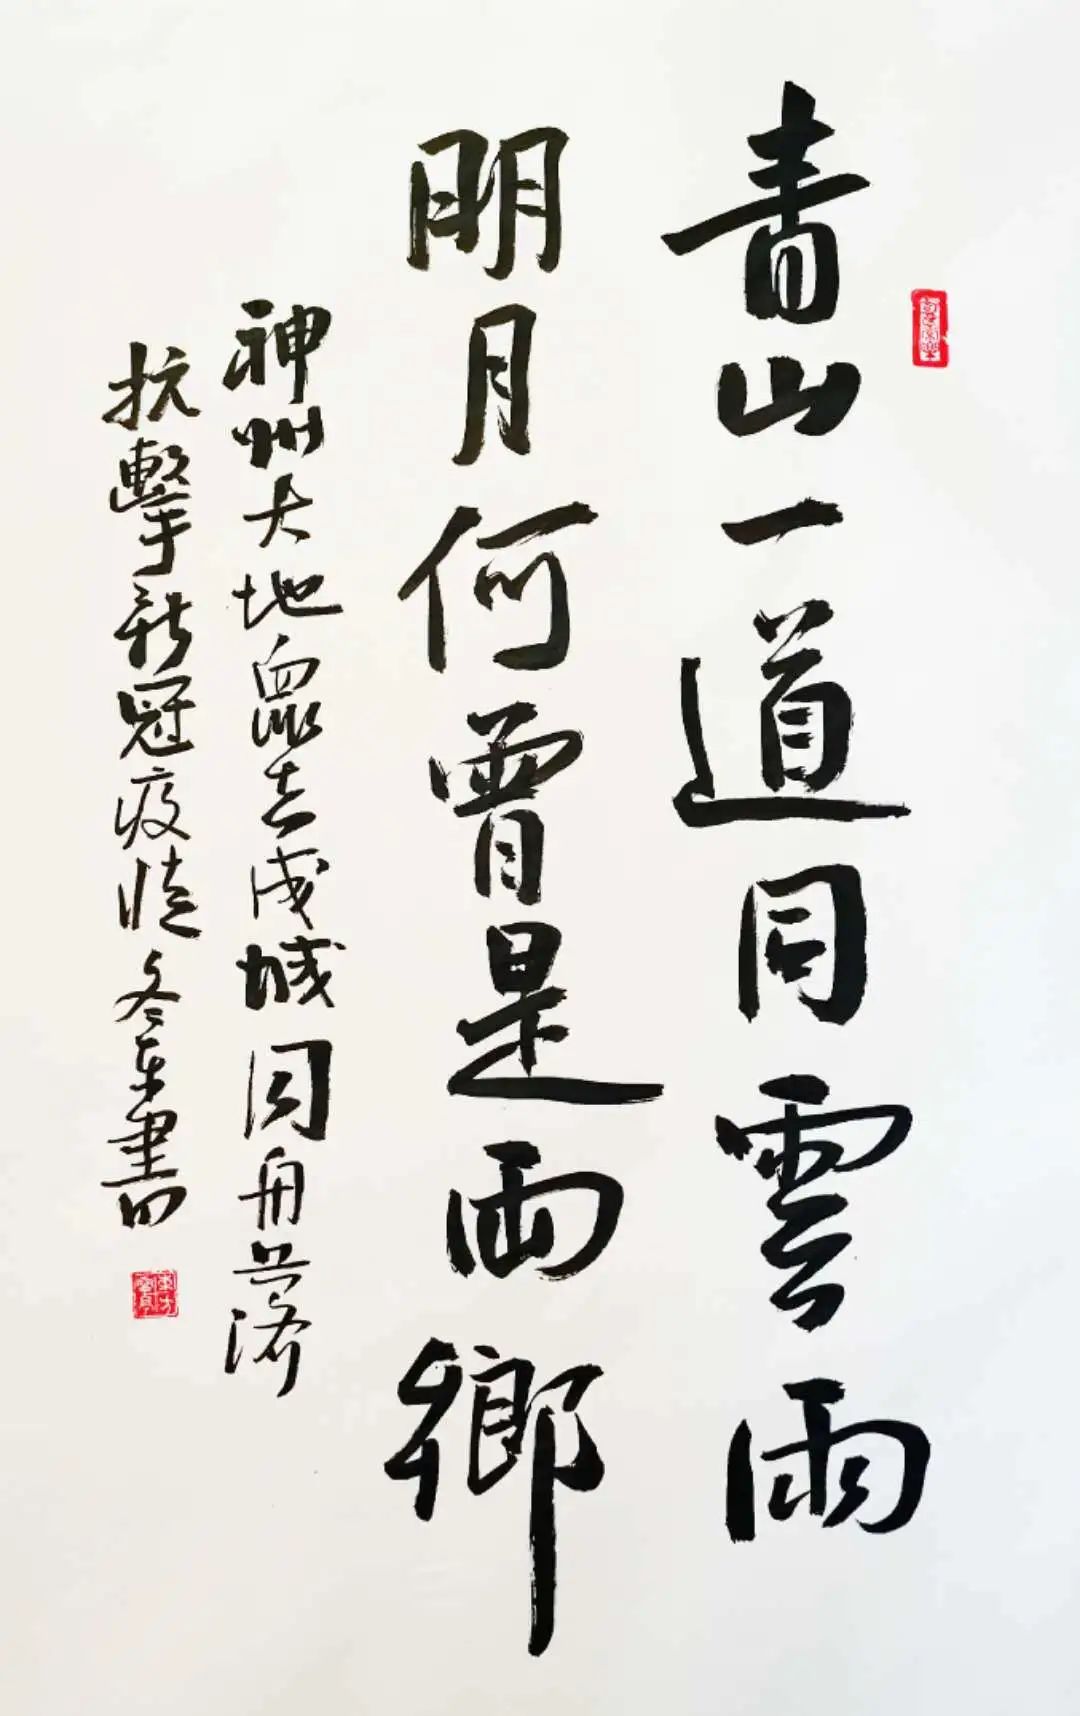 青山一道同雲雨
明月何曾是兩鄉
神州大地眾志成城同舟共濟
抗擊新冠疫情 冬東書